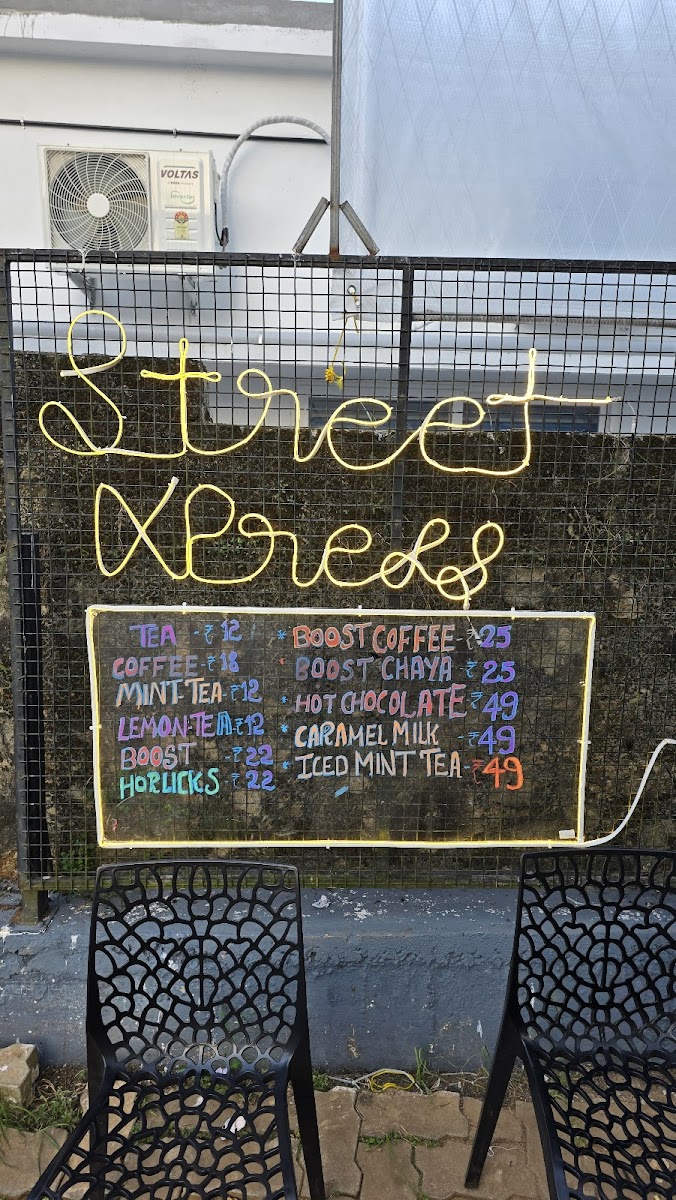 VOLTAS
Inverter
Street
Xpress
TEA - ₹ 12
COFFEE - ₹ 18
MINT TEA - ₹ 12
LEMON-TEA - ₹ 12
BOOST - ₹ 22
HORLICKS - ₹ 22
* BOOST COFFEE - ₹ 25
* BOOST CHAYA - ₹ 25
* HOT CHOCOLATE - ₹ 49
* CARAMEL MILK - ₹ 49
* ICED MINT TEA - ₹ 49